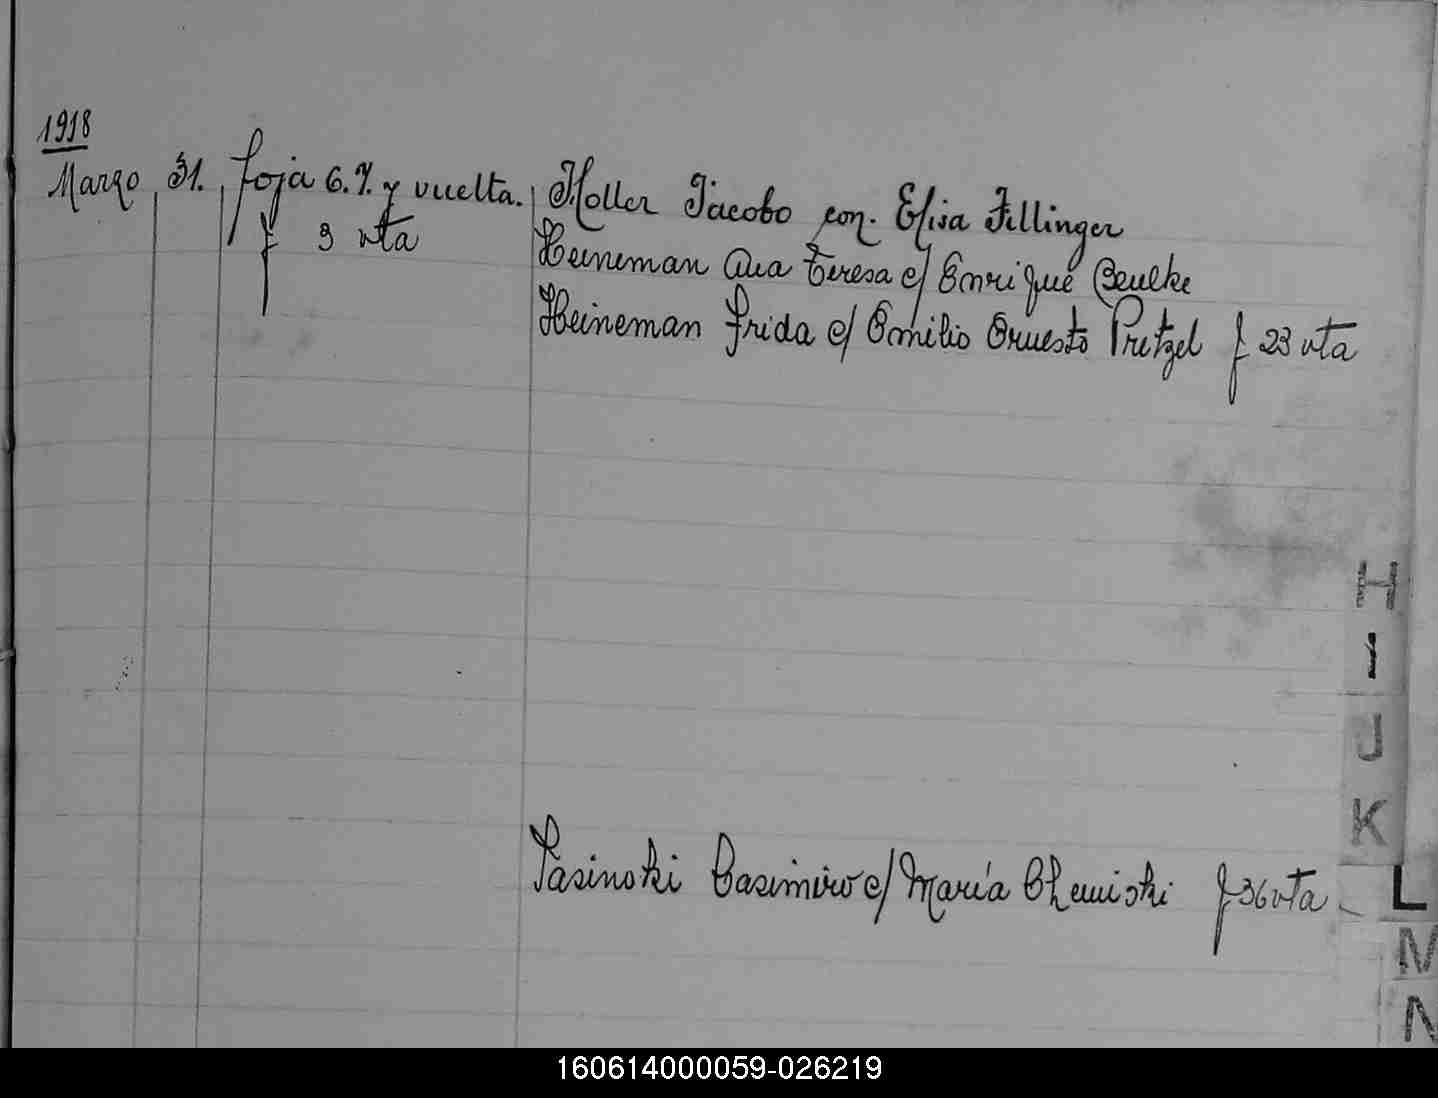 1918
Marzo 31. foja 6.7. y vuelta. Holler Jacobo con. Elisa Fillinger
f 9 vta Heineman Ana Teresa c/ Enrique Beulke
Heineman Frida c/ Emilio Ernesto Pretzel f 23 vta
H
I
J
K
Jasinski Casimiro c/ María Chemiski f 36 vta
L
M
N
160614000059-026219